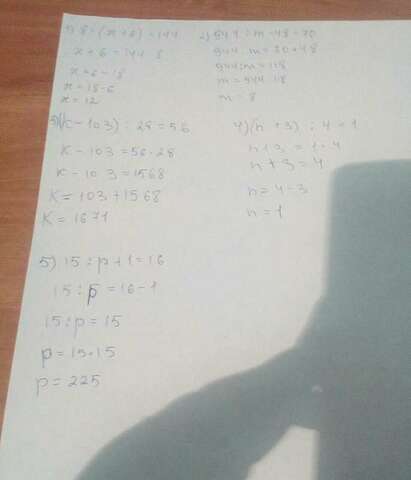 1) 8·(x+6)=144
x+6=144:8
x=6-18
x=18-6
x=12
2) 944:m-48=70
944:m=70+48
944:m=118
m=944:118
m=8
3)(K-103):28=56
K-103=56·28
K-103=1568
K=103+1568
K=1671
4)(n+3):4=1
n+3=1·4
n+3=4
n=4-3
n=1
5) 15:p+1=16
15:p=16-1
15:p=15
p=15·15
p=225